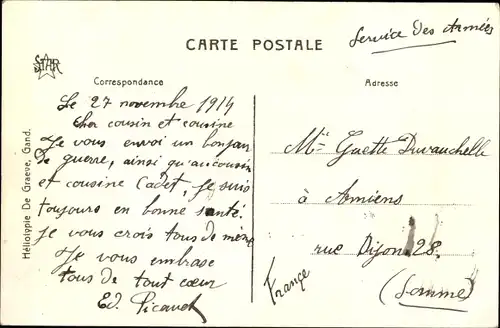 Service Des Armées
CARTE POSTALE
STAR
Correspondance
Adresse
Le 27 novembre 1914
Cher cousin et cousine
Je vous envoi un bonjour
de guerre, ainsi qu'au cousin
et cousine Cadet, je suis
toujours en bonne santé.
je vous crois tous de même
Je vous embrase
tous de tout cœur
Ed. Picavet
Mlle Guette Duvauchelle
à Amiens
rue Dijon 28.
(Somme)
France
Héliotypie De Graeve, Gand.